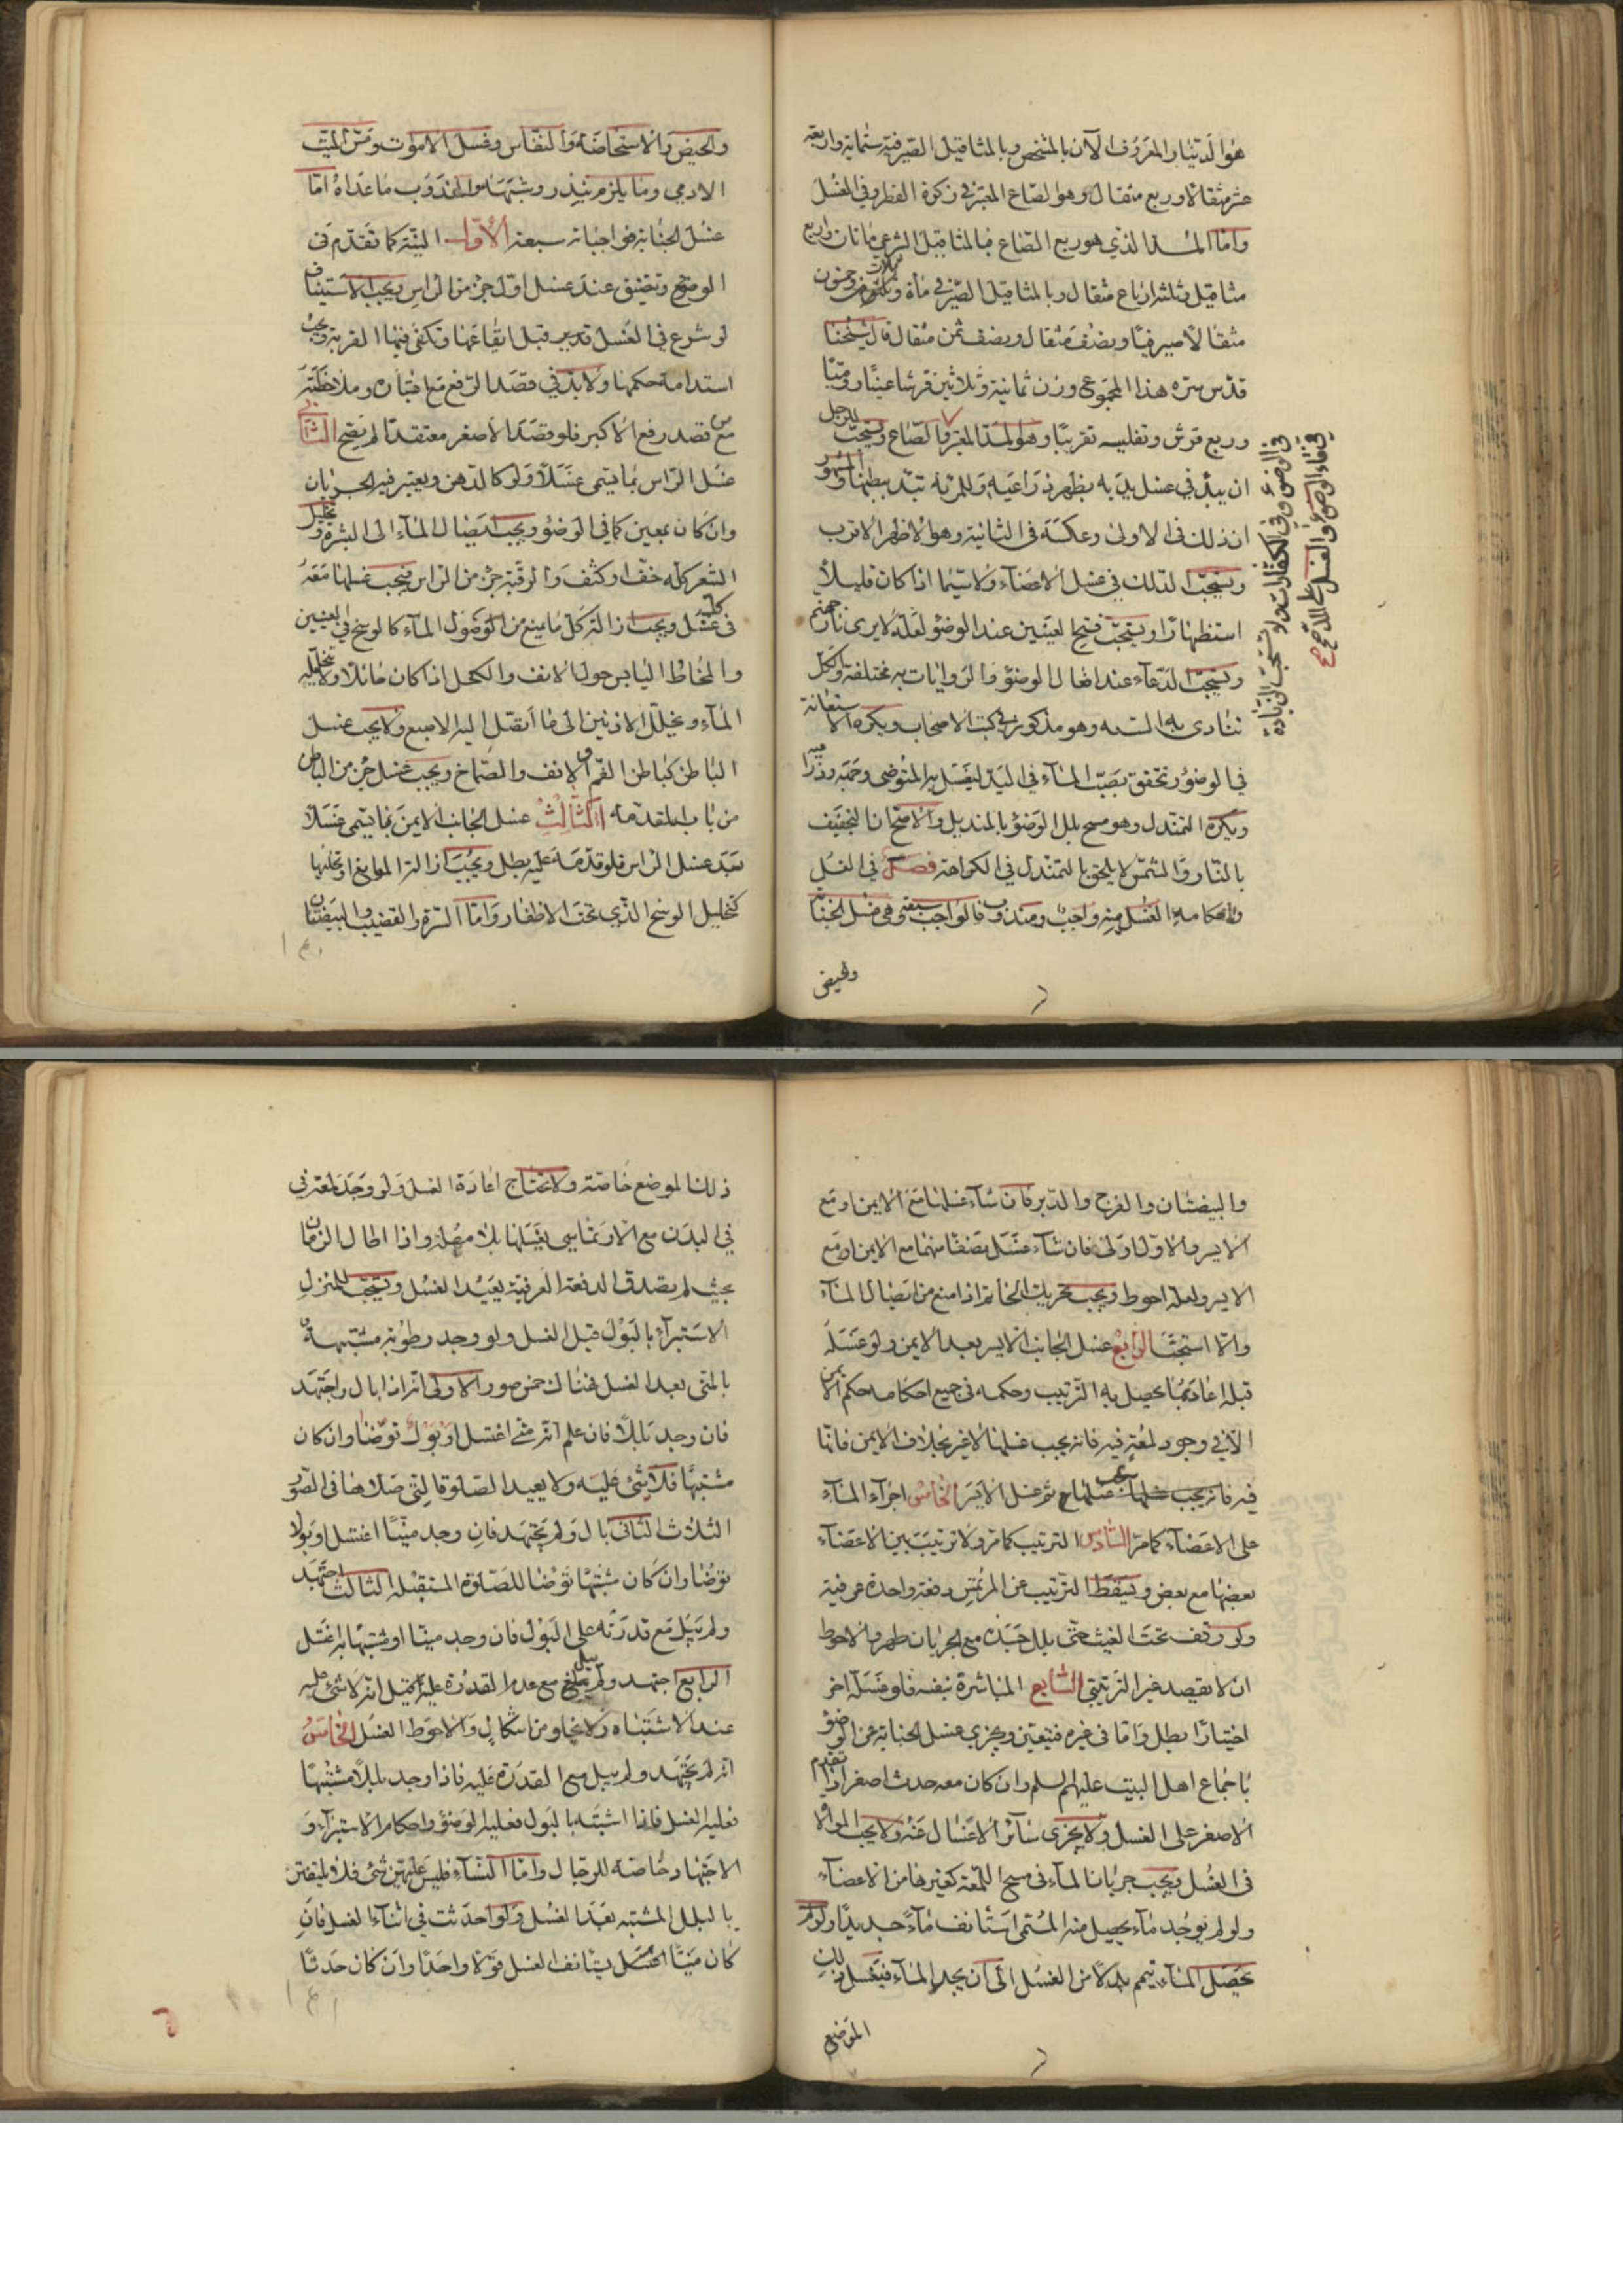 هو الدينار المعروف الآن بالمشخص وبالمثاقيل الصيرفية ستمائة واربعة
عشر مثقالا وربع مثقال وهو الصاع المعتبر في زكوة الفطر وفي الغسل
واما المد الذي هو ربع الصاع فبالمثاقيل الشرعي مائتان واربع
مثاقيل وثلثة ارباع مثقال وبالمثاقيل الصيرفي مأة وثلاث وخمسون
مثقالا صيرفيا ونصف مثقال ونصف ثمن مثقال قال شيخنا
قدس سره هذا المجموع وزن ثمانية وثلاثين قرشا عينيا روميا
وربع قرش وتفليسه تقريبا وهو المد المعتبر في الصاع ويستحب للرجل
ان يبدء في غسل يديه بظهر ذراعيه وللمرئه تبدء ببطنهما والمشهور
ان ذلك في الاولى وعكسه في الثانية وهو الاظهر الاقرب
ويستحب الدلك في غسل الاعضاء ولاسيما اذا كان قليلاً
استظهارا ويستحب فتح العينين عند الوضوء لعله لا يرى نار جهنم
ويستحب الدعاء عند افعال الوضوء والروايات به مختلفة والكل
تتادى به السنه وهو مذكور في كتب الاصحاب ويكره الاستعانة
في الوضوء وتحقق بصب الماء في اليد ليغسل به المتوضي وجهه وذراعيه
ويكره التمندل وهو مسح بلل الوضوء بالمنديل والاصح ان التجفيف
بالنار والشمس لا يلحق بالتمندل في الكراهة فصل في الغسل
واحكامه الغسل منه واجب ومندوب فالواجب ستة وهي غسل الجنابة
والحيض
في الوضوء وفي الكفارات ولا تستحب الزيادة
في ماء الوضوء والغسل على المد صح
والحيض والاستحاضة والنفاس وغسل الاموات ومس الميت
الادمي وما يلزم بنذر وشبهه والمندوب ما عداه اما
غسل الجنابة فواجباته سبعة الأول النية كما تقدم في
الوضوء وتتضيق عند غسل اول جزء من الراس ويجب الاستيناف
لو شرع في الغسل قبل ايقاعها وتكفي فيها القربة ويجب
استدامة حكمها ولابد في قصد الرفع مع اختياره وملاحظته
من قصد رفع الاكبر فلو قصد الاصغر معتقدا لم يصح الثاني
غسل الراس بما يسمى غسلا ولو كالدهن ويعتبر فيه الجريان
وان كان بمعين كما في الوضوء ويجب ايصال الماء الى البشرة وتخليل
الشعر كله خف او كثف والرقبة جزء من الراس فيجب غسلها معه
في غسله ويجب ازالة كل ما يمنع من الوصول الماء كالوسخ في العينين
والمخاط اليابس حول الانف والكحل اذا كان حائلا ولا يتخلله
الماء ويخلل الاذنين الى ما اتصل اليه الاصبع ولا يجب غسل
الباطن كباطن الفم والانف والصماخ ويجب غسل جزء من الباطن
من باب المقدمه الثالث غسل الجانب الايمن بما يسمى غسلا
بعد غسل الراس فلو قدمه عليه بطل ويجب ازالة الموانع او تخليلها
كتخليل الوسخ الذي تحت الاظفار واما السرة والقضيب والبيضتان
والبيضتان والفرج والدبر فان شاء غسلها مع الايمن او مع
الايسر والاول اولى فان شاء غسل نصفا منهما مع الايمن او مع
الايسر ولعله احوط ويجب تحريك الخاتم اذا منع من ايصال الماء
والا استحب الرابع غسل الجانب الايسر بعد الايمن ولو غسله
قبله اعاد بما يحصل به الترتيب وحكمه في جميع احكامه حكم الايمن
الا في وجود لمعة فيه فانه يجب غسلها لا غير بخلاف الايمن فانها
فيه فانه يجب غسلها ثم غسل الايسر الخامس اجراء الماء
على الاعضاء كما مر السادس الترتيب كما مر ولا ترتيب بين الاعضاء
بعضها مع بعض ويسقط الترتيب عن المرتمس دفعة واحدة عرفية
ولو وقف تحت الغيث حتى بلل جسده مع الجريان طهر والاحوط
ان لا يقصد غير الترتيبي السابع المباشرة بنفسه فلو غسله اخر
اختيارا بطل واما في غيره فيتعين ويجزي غسل الجنابة عن الوضوء
باجماع اهل البيت عليهم السلم وان كان معه حدث اصغر او تقدم
الاصغر على الغسل ولا يجزى سائر الاغسال عنه ولا يجب الموالاة
في الغسل ويجب جريان الماء في مسح اللمعة كغيرها من الاعضاء
ولو لم يوجد ماء يحصل منه المسمى استانف ماء جديدا ولو لم
يحصل الماء تيمم بدلا من الغسل الى ان يجد الماء فيغسل ذلك
الموضع
ذلك الموضع خاصة ولا تحتاج اعادة الغسل ولو وجد لمعة في
في البدن مع الارتماسي يغسلها بلا مهلة واذا اطال الزمان
بحيث لم يصدق الدفعة العرفية يعيد الغسل ويستحب للمنزل
الاستبراء بالبول قبل الغسل ولو وجد رطوبة مشتبهة
بالمنى بعد الغسل فهناك خمس صور الاولى انه اذا بال واجتهد
فان وجد بللا فان علم انه مني اغتسل او بول توضا وان كان
مشتبها فلا شئ عليه ولا يعيد الصلوة التي صلاها في الصور
الثلاث الثاني بال ولم يجتهد فان وجد منيا اغتسل او بولا
توضا وان كان مشتبها توضا للصلوة المستقبله الثالث اجتهد
ولم يبل مع قدرته على البول فان وجد منيا او مشتبها به اغتسل
الرابع اجتهد ولم يبل مع عدم القدرة عليه قيل انه لا شئ عليه
عند الاشتباه ولا يخلو من اشكال والاحوط الغسل الخامس
انه لم يجتهد ولم يبل مع القدرة عليه فاذا وجد بللا مشتبها
فعليه الغسل فاذا اشتبه بالبول فعليه الوضوء واحكام الاستبراء و
الاجتهاد خاصة للرجال واما النساء فليس عليهن شئ فلا يلتفتن
بالبلل المشتبه بعد الغسل ولو احدثت في اثناء الغسل فان
كان منيا يستانف الغسل قولا واحدا وان كان حدثا